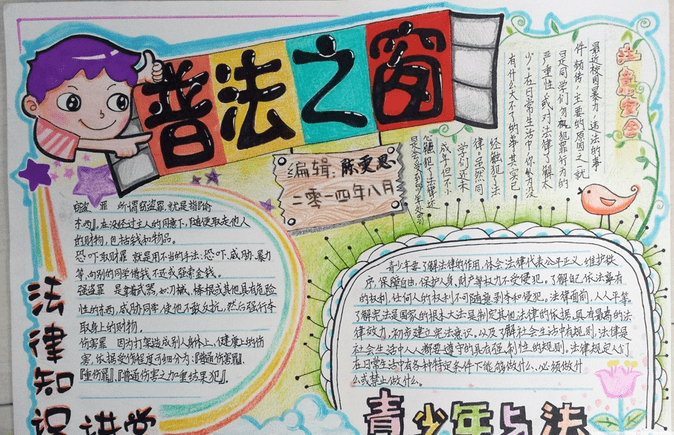 普法之窗
编辑：陈雯思
二零一四年八月
注意安全
最近校园暴力，违法的事
件频传，主要的原因之一就
是同学们勿视犯罪行为的
严重性，或对法律了解太
少。在日常生活中，你认为没
有什么大不了的事其实已
经触犯了法
律。虽然同
学们还未
成年但不
窃盗罪 所谓窃盗罪，就是指偷
东西，在没经过主人的同意下，随便取走他人
的财物，包括钱和物品。
恐吓取财罪 就是用不当的手法：恐吓、威胁、暴力
等，向别的同学借钱不还或强索金钱。
强盗罪 是拿武器，如刀械、棒棍或其他具有危险
性的东西，威胁同学，使他不敢反抗，然后强行夺
取身上的财物。
伤害罪 因为打架造成别人身体上、健康上的伤
害，依据受伤程度可细分为：『普通伤害罪』、
『重伤罪』、『普通伤害之加重结果犯』。
青少年要了解法律的作用，体会法律代表公平正义，维护秩
序，保障自由，保护人身、财产等权力不受侵犯，了解自己依法享有
的权利，任何人的权利不可随意剥夺和侵犯，法律面前，人人平等，
了解宪法是国家的根本大法是制定其他法律的依据，具有最高的法
律效力，初步建立宪法意识，以及了解社会生活中有规则，法律是
社会生活中人人都要遵守的具有强制性的规则，法律规定人们
在日常生活中在各种特定条件下能够做什么、必须做什
么或禁止做什么。
法律知识讲堂
青少年与法